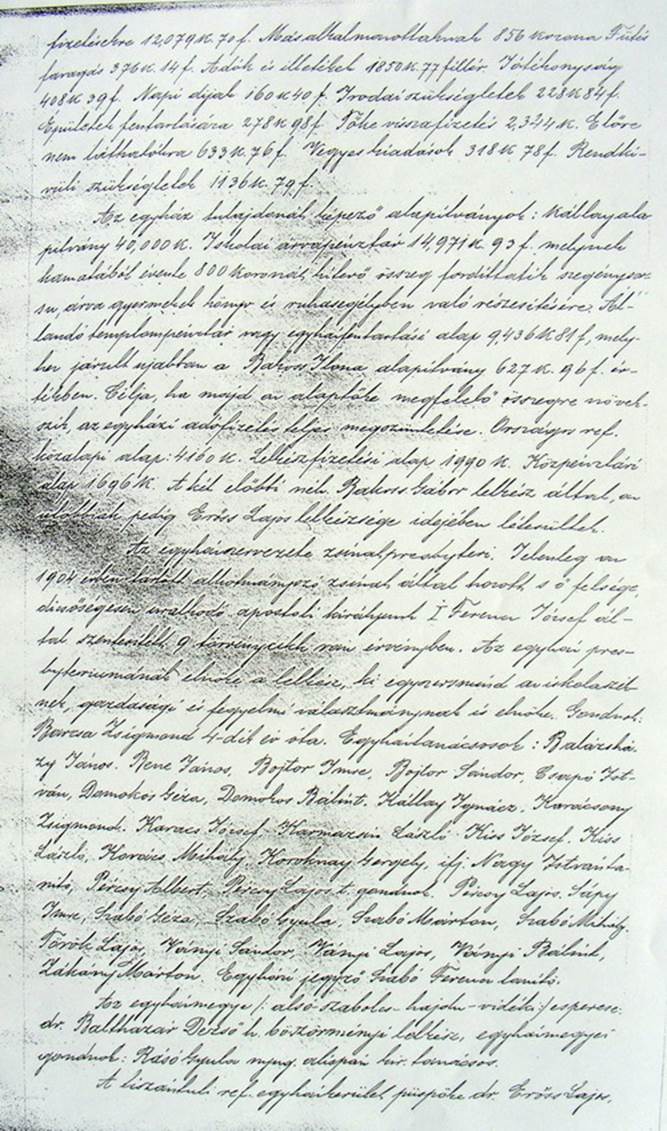 fizetésekre 12,079 K. 70 f. Más alkalmazottaknak 856 korona Fűtés
faragás 376 K. 14 f. Adók és illetékek 1850 K. 77 fillér. Jótékonyság
408 K 39 f. Napi dijak 160 K 40 f. Irodai szükségletek 228 K 84 f.
Épületek fentartására 278 K 98 f. Tőke visszafizetés 2,344 K. Előre
nem láthatókra 633 K. 76 f. Vegyes kiadások 318 K 78 f. Rendki-
vüli szükségletek 1136 K. 79 f.
Az egyház tulajdonát képező alapitványok: Kállay ala
pitvány 40,000 K. Iskolai árvapénztár 14,971 K. 93 f. melynek
kamatából évente 800 koronát kitevő összeg fordittatik szegénysor-
su, árva gyermekek könyv és ruhasegélyben való részesitésére. Ál-
landó templompénztár vagy egyházfentartási alap 9,436 K 81 f, mely-
hez járult ujabban a Bakoss Ilona alapitvány 627 K. 96 f. ér-
tékben. Célja, ha majd az alaptőke megfelelő összegre növek-
szik, az egyházi adófizetés teljes megszüntetése. Országos ref.
közalapi alap: 4160 K. Lelkészfizetési alap 1990 K. Közpénztári
alap 1696 K. A két előbbi néh. Bakoss Gábor lelkész által, az
utóbbiak pedig Erőss Lajos lelkészsége idejében létesültek.
Az egyház szervezete zsinat presbyteri. Jelenleg az
1904 évben tartott alkotmányozó zsinat által hozott s ő felsége,
dicsőségesen uralkodó apostoli királyunk I Ferencz József ál-
tal szentesitett 9 törvénycikk van érvényben. Az egyház pres-
byteriumának elnöke a lelkész, ki egyszersmind az iskolaszék-
nek, gazdasági és fegyelmi választmánynak is elnöke. Gondnok:
Barcsa Zsigmond 4-dik év óta. Egyháztanácsosok: Balázshá-
zy János. Bene János, Bojtor Imre, Bojtor Sándor, Csapó Ist-
ván, Domokos Géza, Domokos Bálint. Kállay Ignácz. Karácsony
Zsigmond. Karacs József. Karmazsin László. Kiss József. Kiss
László, Kovács Mihály, Koroknay Gergely, ifj. Nagy István ta-
nitó, Pércsy Albert, Pércsy Lajos t. gondnok. Pércsy Lajos. Sápy
Imre, Szabó Géza, Szabó Gyula, Szabó Márton, Szabó Mihály.
Török Lajos, Ványi Sándor, Ványi Lajos, Ványi Bálint,
Zákány Márton. Egyházi jegyző Szabó Ferenc tanitó.
Az egyházmegye /: alsó-szabolcs-hajdu-vidéki :/ esperese:
dr. Balthazár Dezső h. böszörményi lelkész, egyházmegyei
gondnok: Rásó Gyula nyug. alispán kir. tanácsos.
A tiszántuli ref. egyházkerület püspöke dr. Erőss Lajos,